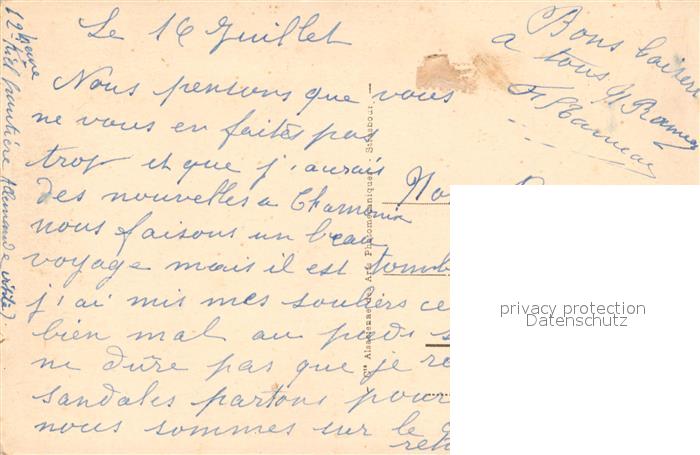 Le 16 Juillet
Nous pensons que vous
ne vous en faites pas
trop et que j'aurais
des nouvelles a Chamonix
nous faisons un beau
voyage mais il est tomb
j'ai mis mes souliers ce
bien mal au pieds s
ne dure pas que je re
sandales partons pour
nous sommes sur le
Bons baisers
a tous
frontière Allemande visité)
Cie Alsacienne des Arts Photomécaniques - Strasbourg
privacy protection
Datenschutz